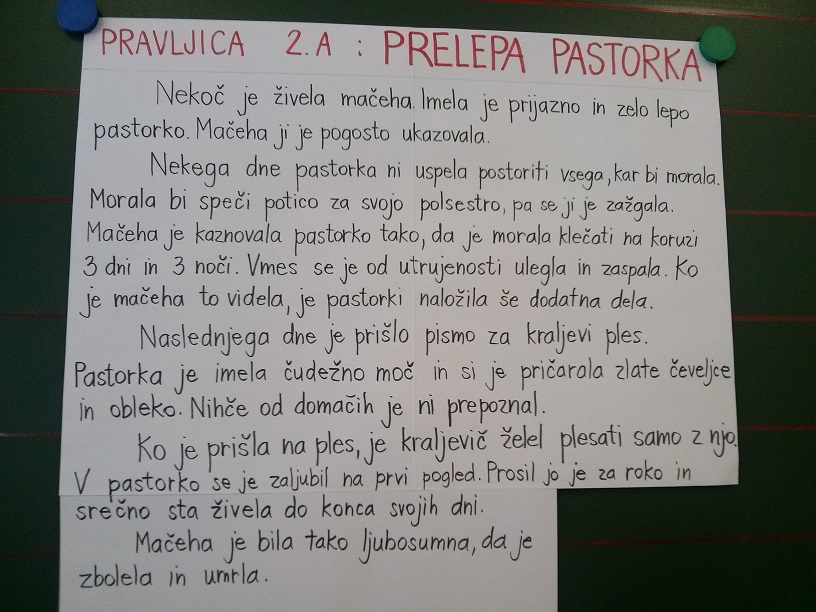 PRAVLJICA 2.A : PRELEPA PASTORKA
Nekoč je živela mačeha. Imela je prijazno in zelo lepo
pastorko. Mačeha ji je pogosto ukazovala.
Nekega dne pastorka ni uspela postoriti vsega, kar bi morala.
Morala bi speči potico za svojo polsestro, pa se ji je zažgala.
Mačeha je kaznovala pastorko tako, da je morala klečati na koruzi
3 dni in 3 noči. Vmes se je od utrujenosti ulegla in zaspala. Ko
je mačeha to videla, je pastorki naložila še dodatna dela.
Naslednjega dne je prišlo pismo za kraljevi ples.
Pastorka je imela čudežno moč in si je pričarala zlate čeveljce
in obleko. Nihče od domačih je ni prepoznal.
Ko je prišla na ples, je kraljevič želel plesati samo z njo.
V pastorko se je zaljubil na prvi pogled. Prosil jo je za roko in
srečno sta živela do konca svojih dni.
Mačeha je bila tako ljubosumna, da je
zbolela in umrla.